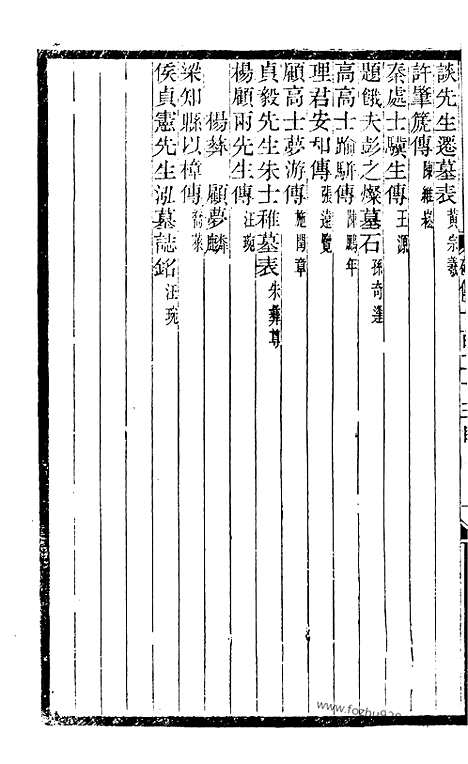 談先生遷墓表 黃宗羲
許肇篪傳 陳維崧
秦處士驥生傳 王源
題餓夫彭之燦墓石 孫奇逢
高高士踰駢傳 陳鵬年
理君安和傳 張遠覽
顧高士夢游傳 施閏章
貞毅先生朱士稚墓表 朱彝尊
楊顧兩先生傳 汪琬
楊彝 顧夢麟
梁知縣以樟傳 喬萊
侯貞憲先生泓墓誌銘 汪琬